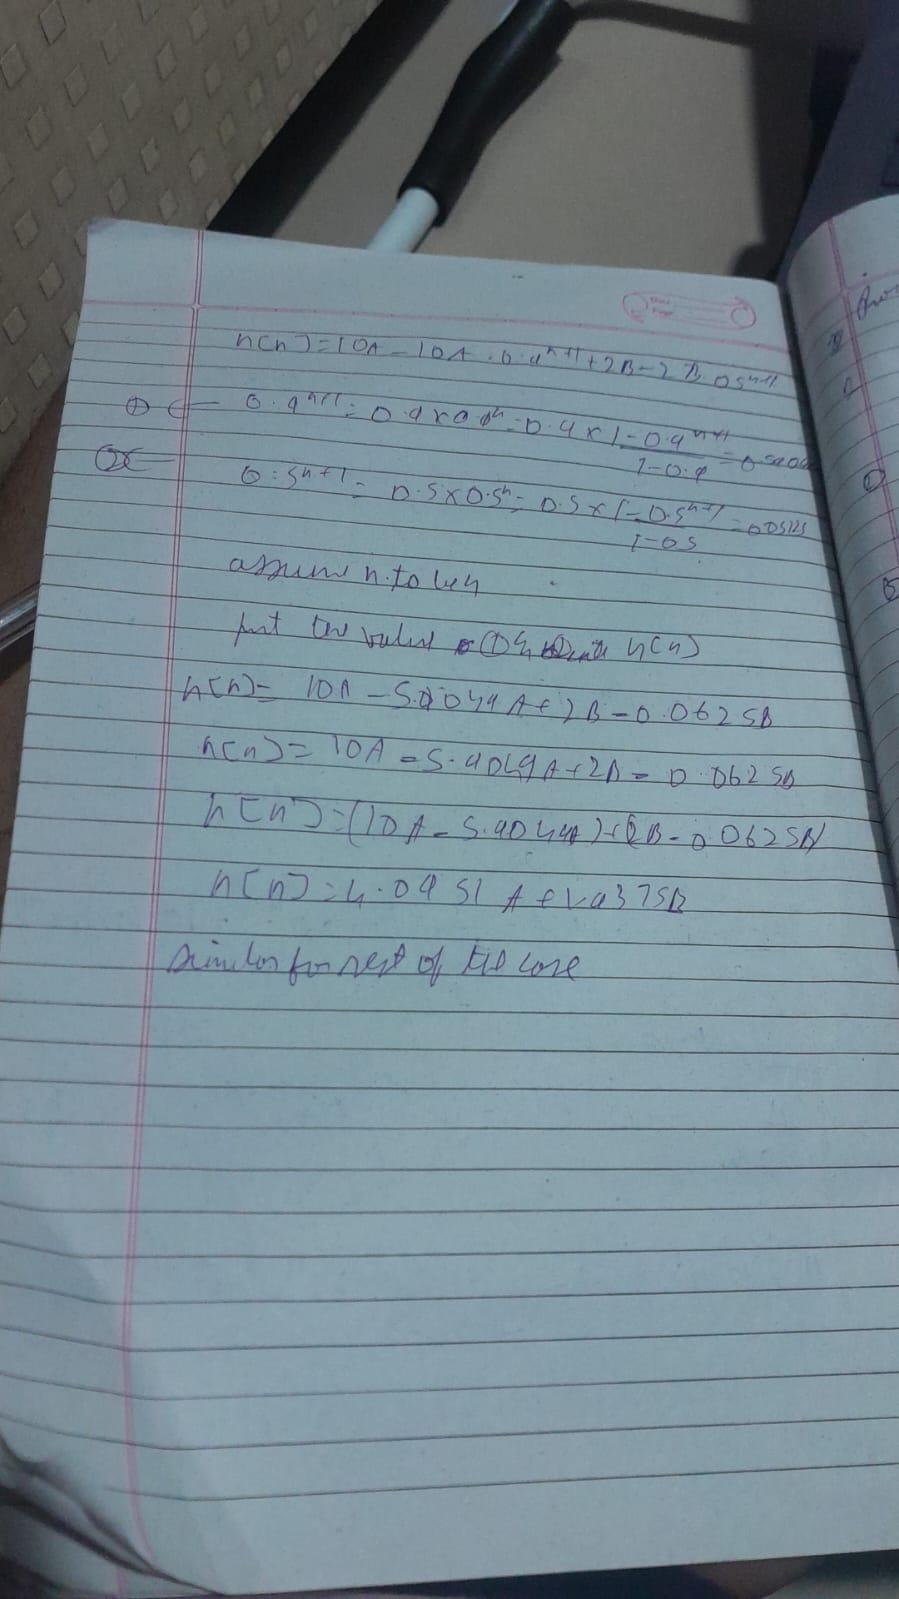 h[n] = 10A - 10A . 0.9ⁿ⁺¹ + 2B - 2B 0.5ⁿ⁺¹
① ← 0.9ⁿ⁺¹ = 0.9 x 0.9ⁿ = 0.9 x 1-0.9ⁿ⁺¹/1-0.9
② ← 0.5ⁿ⁺¹ = 0.5 x 0.5ⁿ = 0.5 x 1-0.5ⁿ⁺¹/1-0.5
assume n to
put the value ① h[n]
h[n] = 10A - 5.9049A + 2B - 0.0625B
h[n] = 10A - 5.9049A + 2B - 0.0625B
h[n] = (10A - 5.9049A) + (2B - 0.0625B)
h[n] = 4.0951 A + 1.9375B
similar for rest of the case